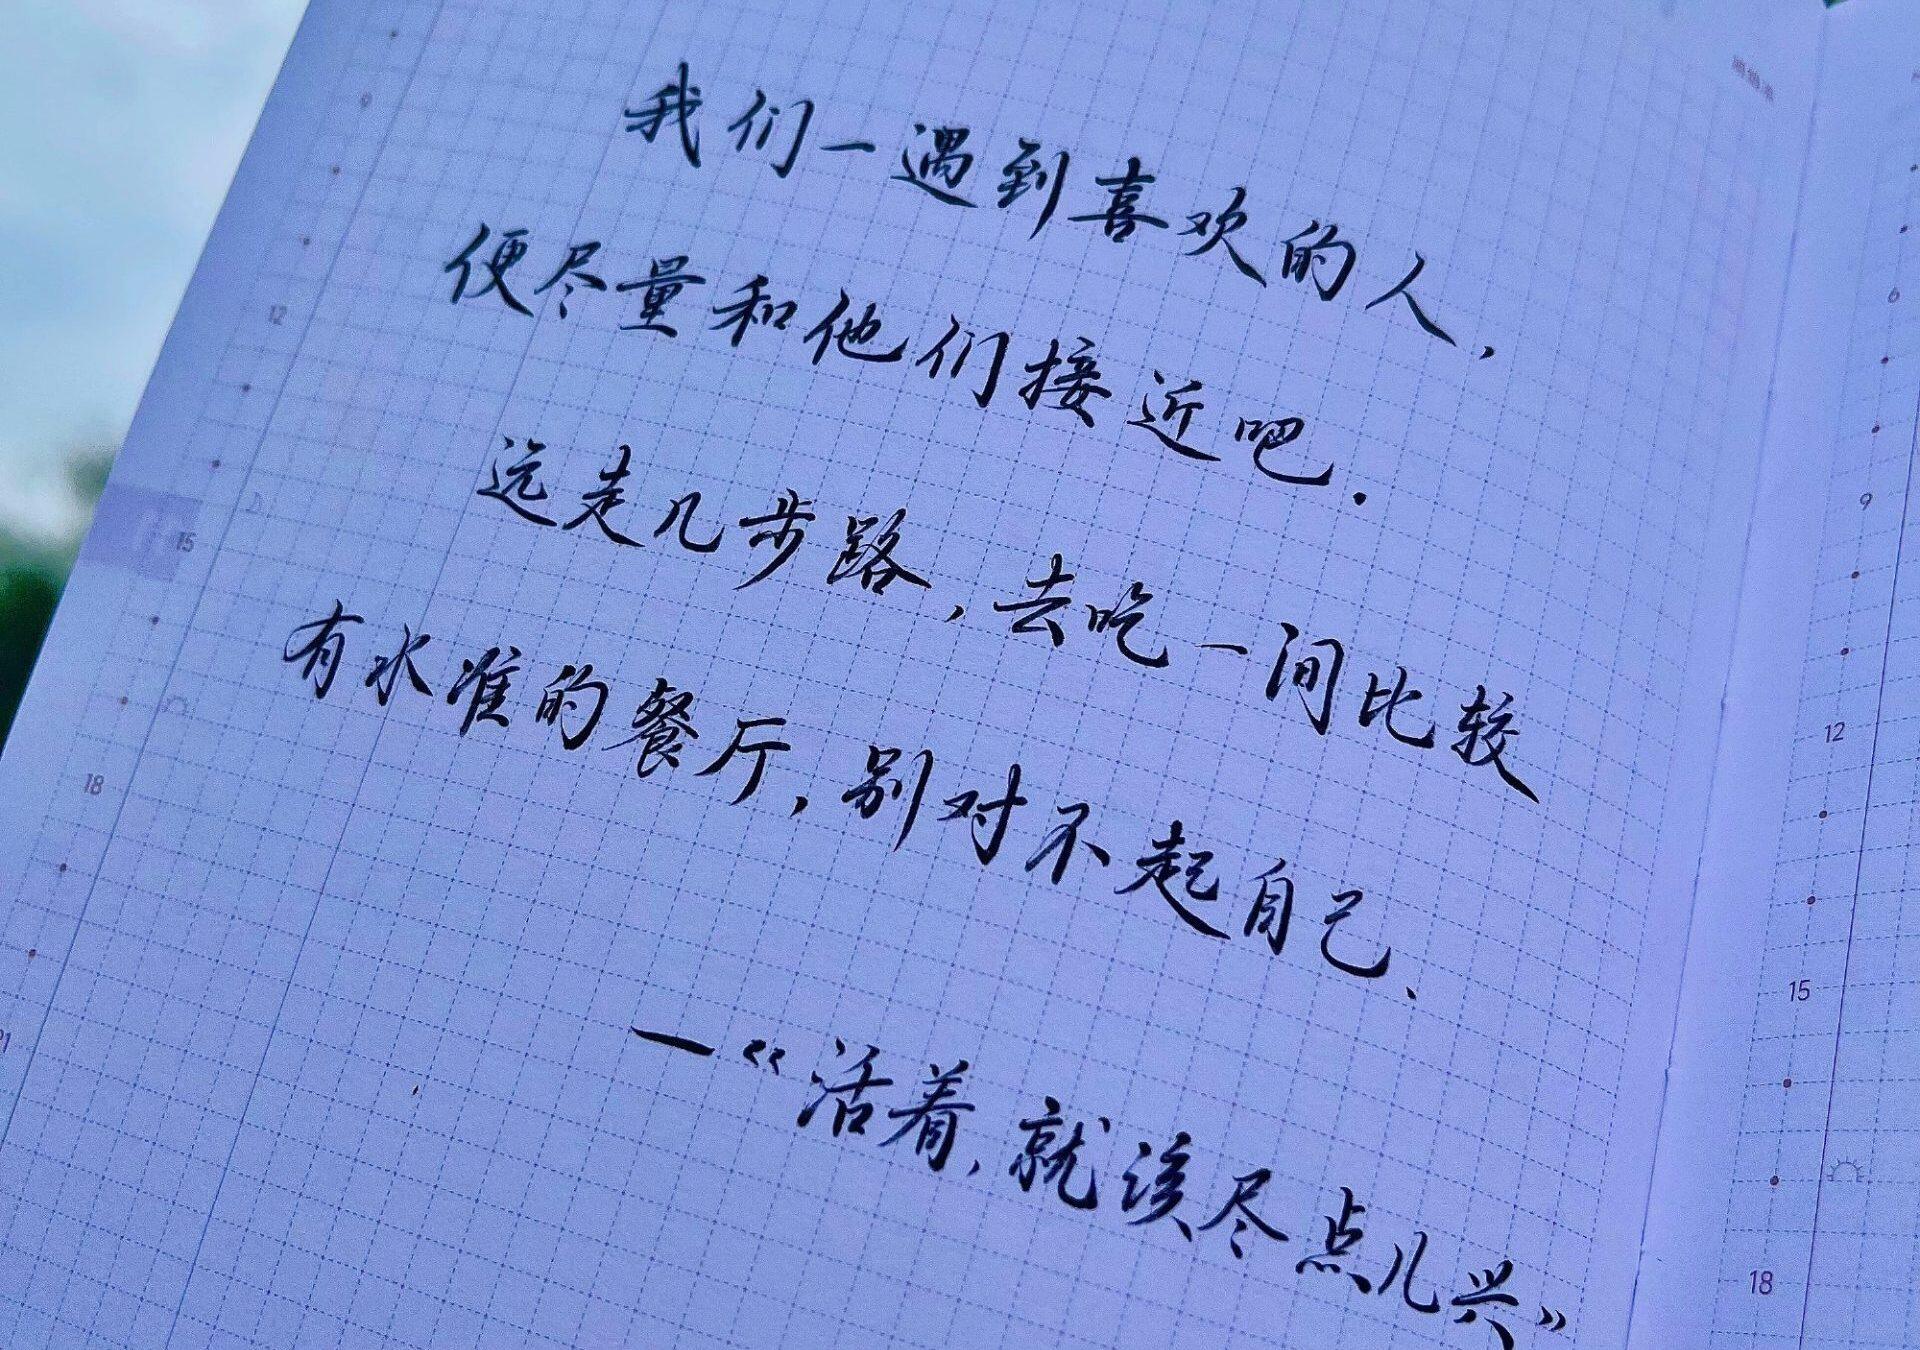 我们一遇到喜欢的人，
便尽量和他们接近吧．
远走几步路，去吃一间比较
有水准的餐厅，别对不起自己、
—《活着，就该尽点儿兴》
9
12
15
18
21
6
9
12
15
18